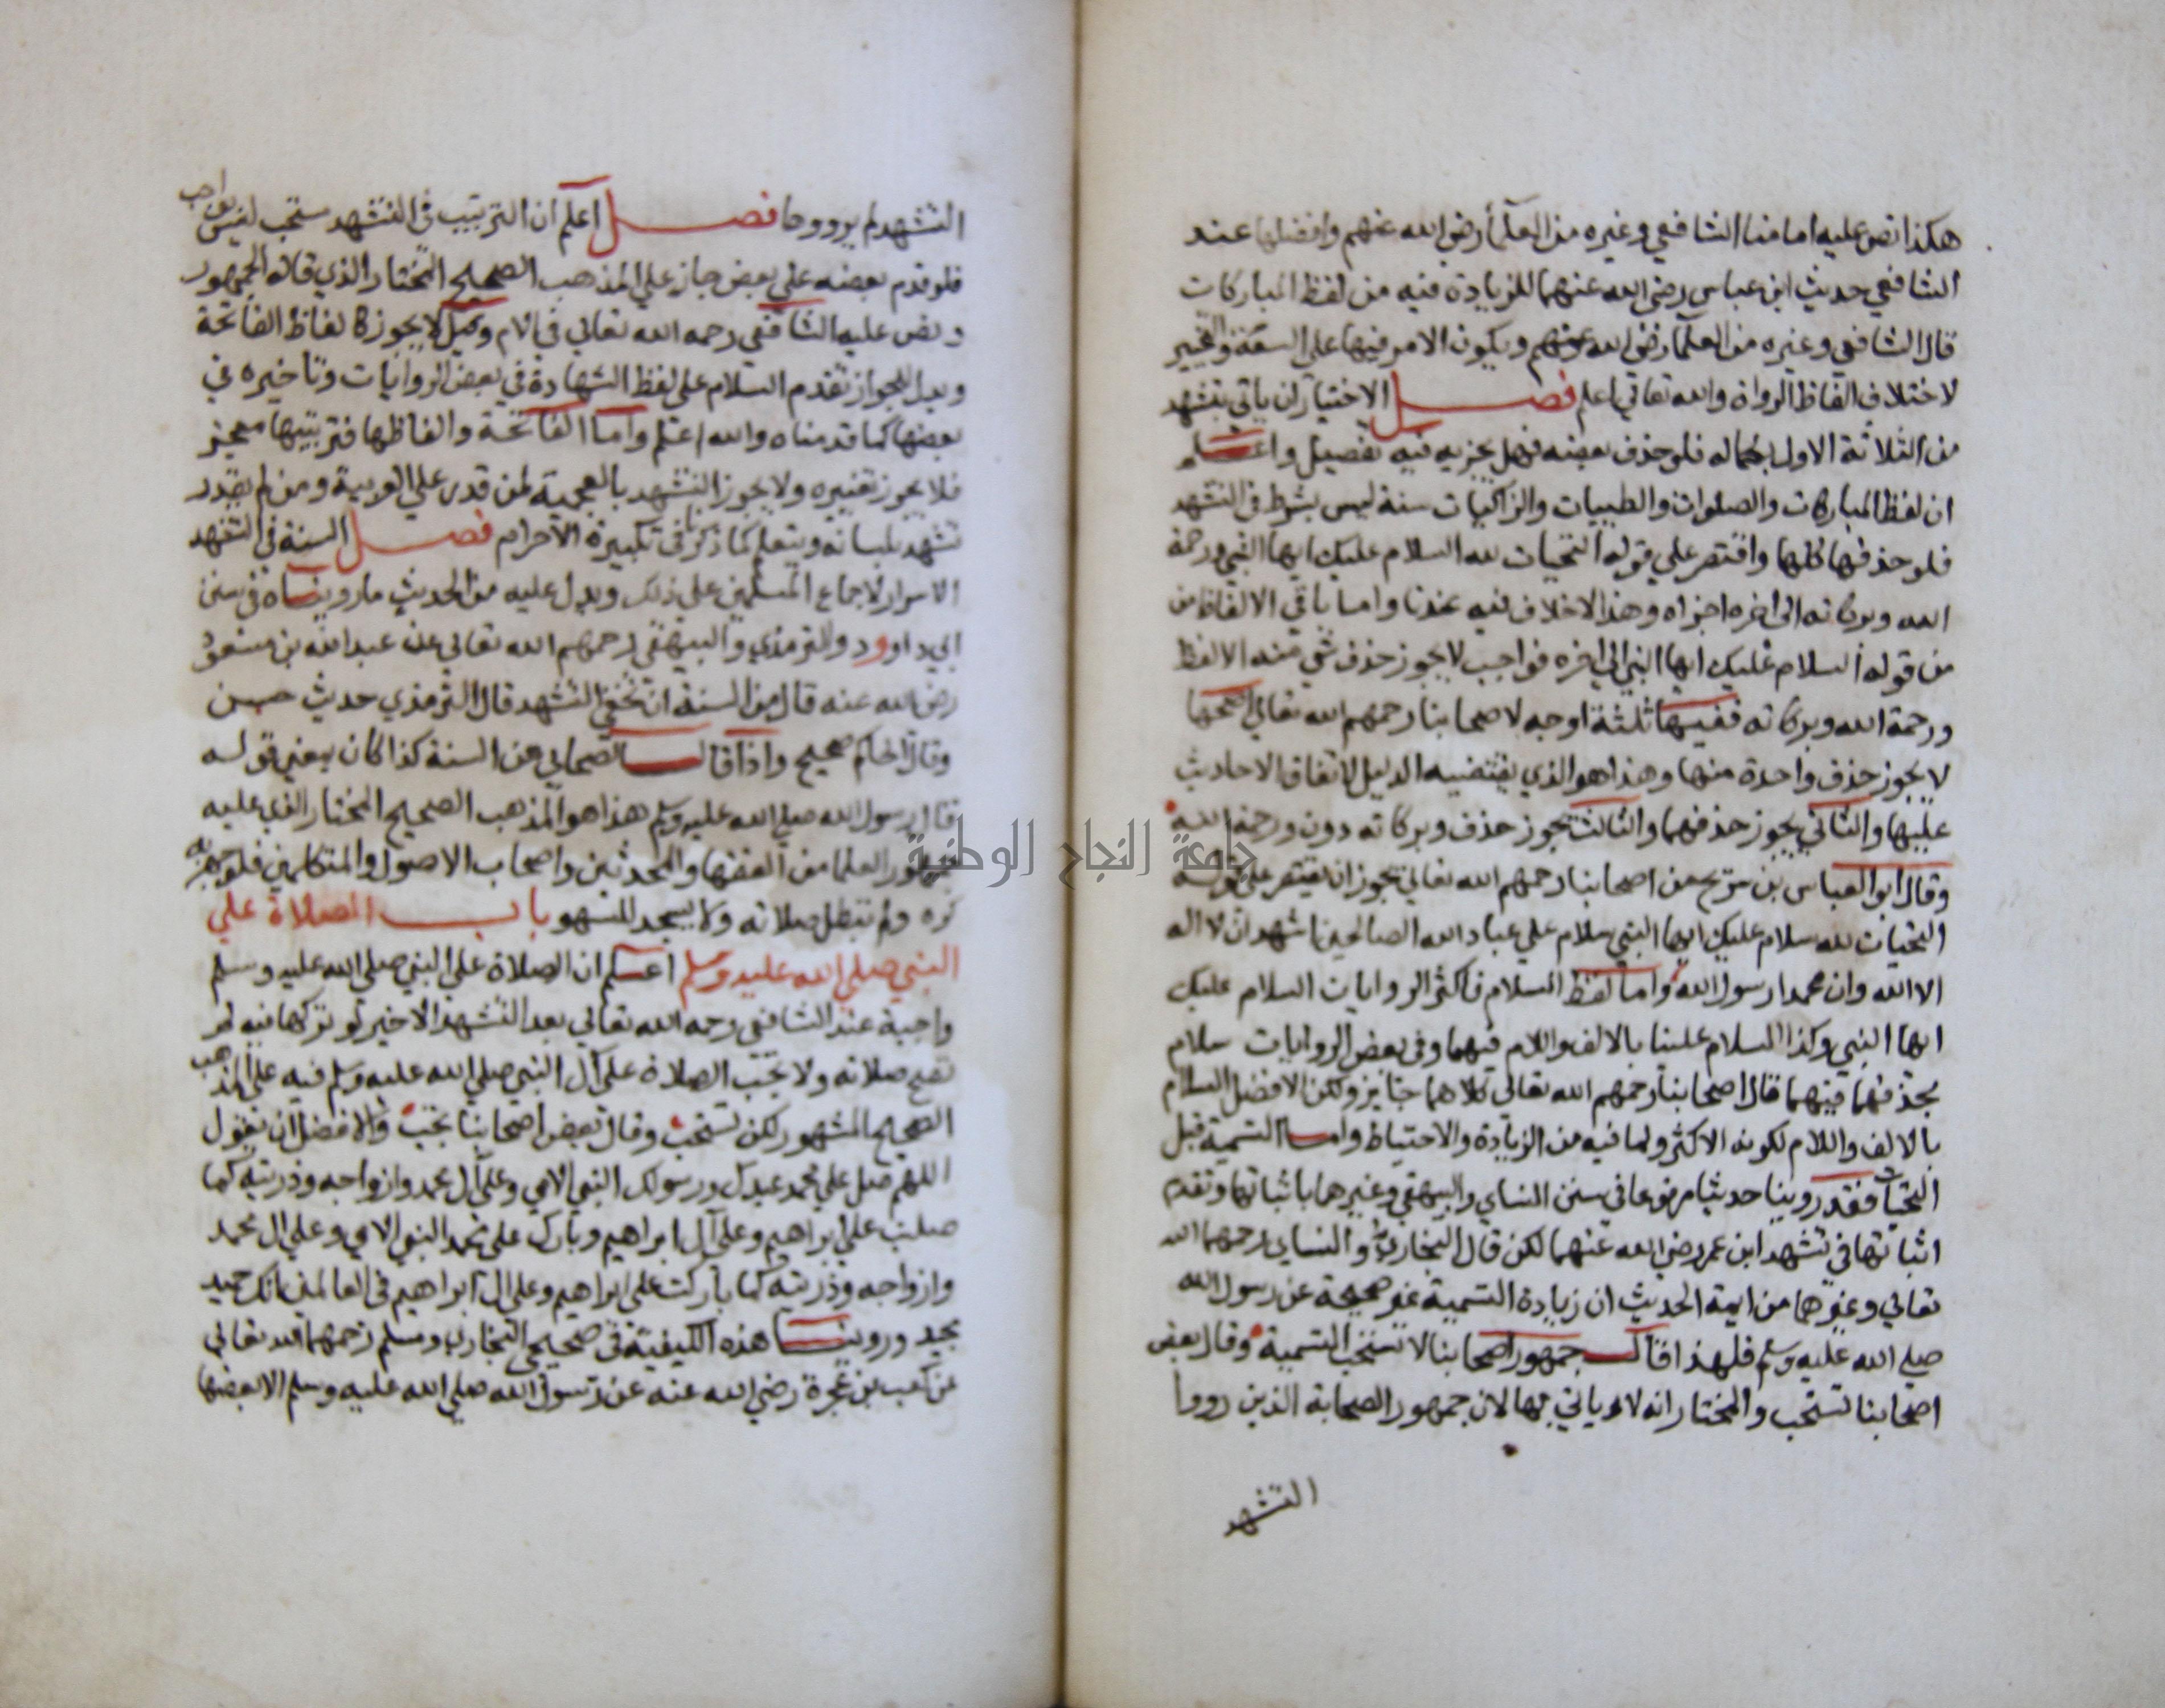 هكذا نص عليه امامنا الشافعي وغيره من العلمآ رضي الله عنهم وافضلها عند
الشافعي حديث ابن عباس رضي الله عنهما للزيادة فيه من لفظ المباركات
قال الشافعي وغيره من العلمآ رضي الله عنهم ويكون الامر فيها على السعة والتخيير
لاختلاف الفاظ الرواة والله تعالي اعلم فصل الاختيار ان ياتي بتشهد
من الثلاثة الاول بكماله فلو حذف بعضه فهل يجزيه فيه تفصيل واعلم
ان لفظ المباركات والصلوات والطيبات والزاكيات سنة ليس بشرط في التشهد
فلو حذفها كلها واقتصر علي قوله التحيات لله السلام عليك ايها النبي ورحمة
الله وبركاته الى اخره اجزاه وهذا لا خلاف فيه عندنا واما باقي الالفاظ من
من قوله السلام عليك ايها النبي الى اخره فواجب لا يجوز حذف شي منه الا لفظ
ورحمة الله وبركاته ففيهما ثلثة اوجه لاصحابنا رحمهم الله تعالى اصحها
لا يجوز حذف واحدة منها وهذا هو الذي يقتضيه الدليل لاتفاق الاحاديث
عليها والثاني يجوز حذفهما والثالث يجوز حذف وبركاته دون ورحمة الله
وقال ابو العباس بن سريج من اصحابنا رحمهم الله تعالي يجوز ان يقتصر على قوله
التحيات لله سلام عليك ايها النبي سلام علي عباد الله الصالحين اشهد ان لا اله
الا الله وان محمدا رسول الله واما لفظ السلام فاكثر الروايات السلام عليك
ايها النبي وكذا السلام علينا بالالف واللام فيهما وفي بعض الروايات سلام
بحذفهما فيهما قال اصحابنا رحمهم الله تعالى كلاهما جايز ولكن الافضل السلام
بالالف واللام لكونه الاكثر ولما فيه من الزيادة والاحتياط واما التسمية قبل
التحيات فقد روينا حديثا مرفوعا في سنن النساي والبيهقي وغيرهما باثباتها وتقدم
اثباتها في تشهد ابن عمر رضي الله عنهما لكن قال البخاري والنساي رحمهما الله
تعالي وغيرهما من ايمة الحديث ان زيادة التسمية غير صحيحة عن رسول الله
صلي الله عليه وسلم فلهذا قال جمهور اصحابنا لا تستحب التسمية وقال بعض
اصحابنا تستحب والمختار انه لا ياتي بها لان جمهور الصحابة الذين رووا
التشهد
التشهد لم يرووها فصل اعلم ان الترتيب في التشهد مستحب ليس بواجب
فلو قدم بعضه علي بعض جاز علي المذهب الصحيح المختار الذي قاله الجمهور
ونص عليه الشافعي رحمه الله تعالي في الام وقيل لا يجوز كالفاظ الفاتحة
ويدل للجواز تقدم السلام على لفظ الشهادة في بعض الروايات وتاخيره في
بعضها كما قدمناه والله اعلم واما الفاتحة والفاظها فترتيبها معجز
فلا يجوز تغييره ولا يجوز التشهد بالعجمية لمن قدر علي العربية ومن لم يقدر
تشهد بلسانه ويتعلم كما ذكرنا في تكبيرة الاحرام فصل السنة في التشهد
الاسرار لاجماع المسلمين علي ذلك ويدل عليه من الحديث ما رويناه في سنن
ابي داوود والترمذي والبيهقي رحمهم الله تعالي عن عبد الله بن مسعود
رضي الله عنه قال من السنة ان يخفي التشهد قال الترمذي حديث حسن
وقال الحاكم صحيح واذا قال الصحابي من السنة كذا كان بمعني قوله
قال رسول الله صلي الله عليه وسلم هذا هو المذهب الصحيح المختار الذي عليه
جمهور العلما من الفقها والمحدثين واصحاب الاصول والمتكلمين فلو جهر به
كره ولم تبطل صلاته ولا يسجد للسهو باب الصلاة علي
النبي صلي الله عليه وسلم اعلم ان الصلاة علي النبي صلي الله عليه وسلم
واجبة عند الشافعي رحمه الله تعالي بعد التشهد الاخير لو تركها فيه لم
تصح صلاته ولا تجب الصلاة على آل النبي صلي الله عليه وسلم فيه على المذهب
الصحيح المشهور لكن تستحب وقال بعض اصحابنا تجب والافضل ان يقول
اللهم صل علي محمد عبدك ورسولك النبي الامي وعلى آل محمد وازواجه وذريته كما
صليت علي ابراهيم وعلى آل ابراهيم وبارك على محمد النبي الامي وعلي ال محمد
وازواجه وذريته كما باركت على ابراهيم وعلى ال ابراهيم في العالمين انك حميد
مجيد وروينا هذه الكيفية في صحيحي البخاري ومسلم رحمهما الله تعالي
عن كعب بن عجرة رضي الله عنه عن رسول الله صلي الله عليه وسلم الا بعضها
جامعة النجاح الوطنية